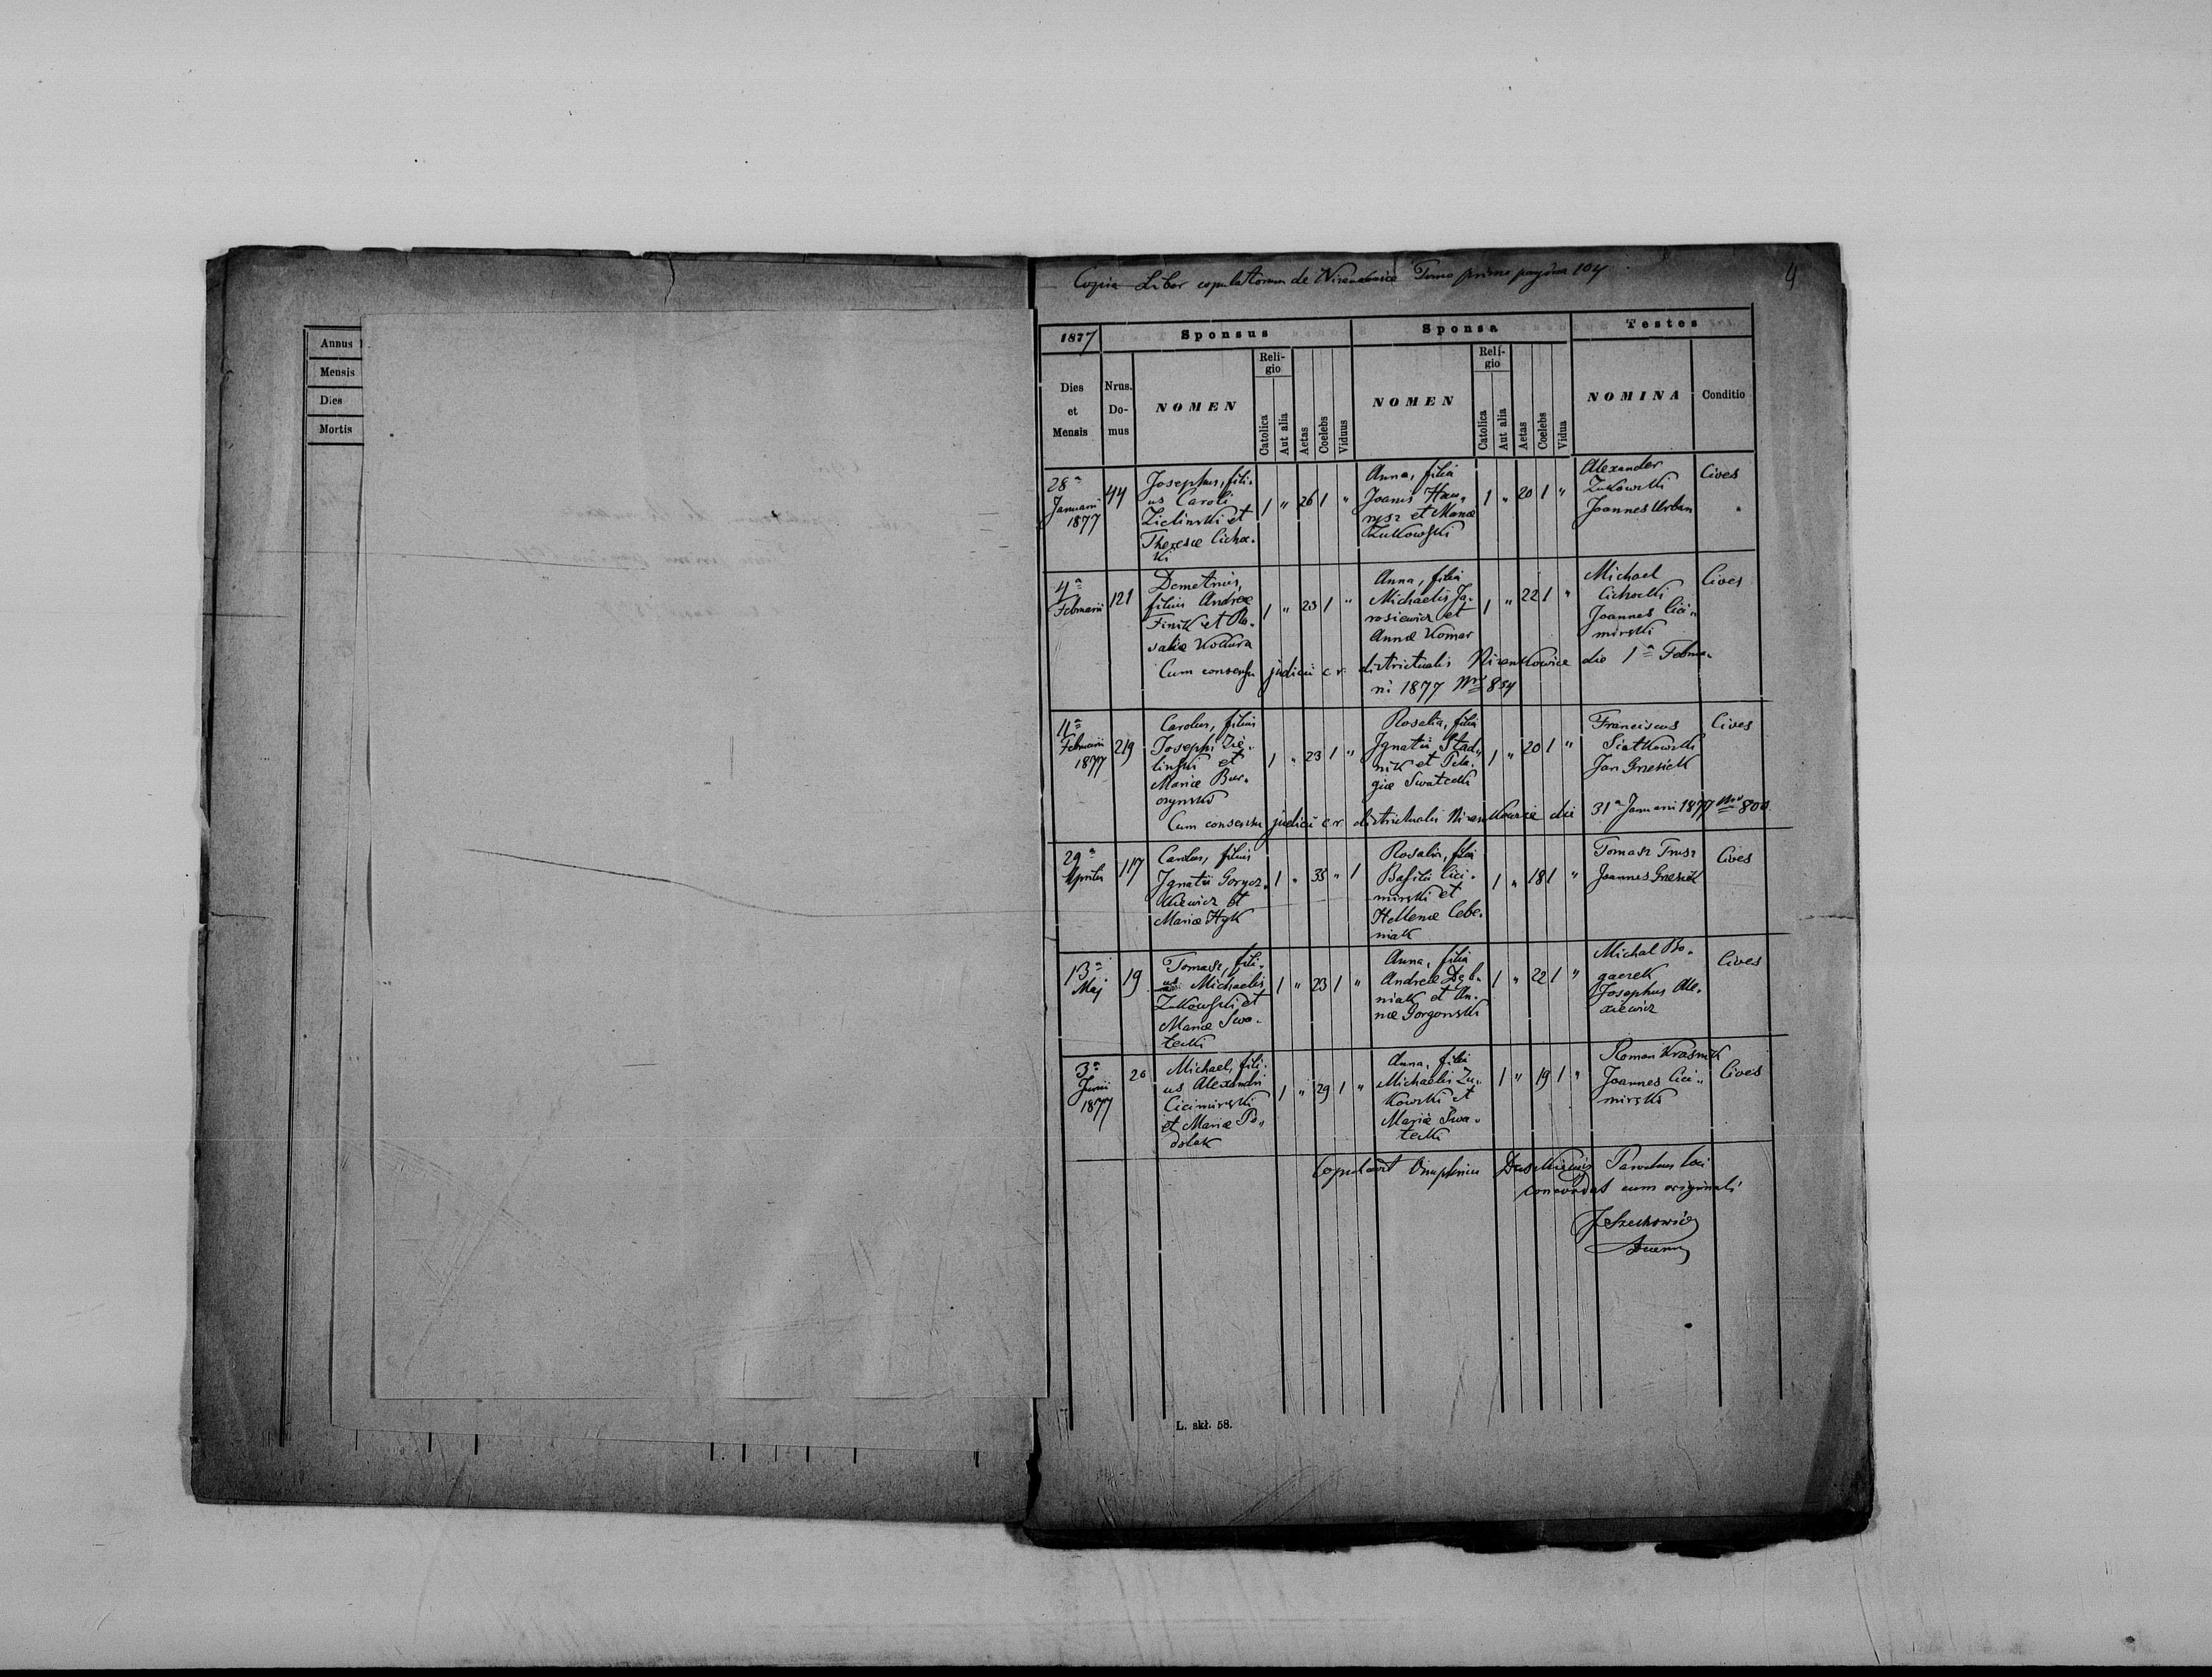 Copia Liber copulatorum de Nizankowice Tomo primo pagina 104
4
Annus
Mensis
Dies
Mortis
1877
Sponsus
Sponsa
Testes
Dies
et
Mensis
Nrus.
Do-
mus
NOMEN
Reli-
gio
Catolica
Aut alia
Aetas
Coelebs
Viduus
NOMEN
Reli-
gio
Catolica
Aut alia
Aetas
Coelebs
Vidua
NOMINA
Conditio
28a
Januarii
1877
44
Josephus, fili-
us Caroli
Zielinski et
Theresiæ Cichoc-
ki
1 " 26 1 "
Anna, filia
Joanis
et Mariæ
Zukowski
1 " 20 1 "
Alexander
Zukowski
Joannes Urban
Cives
4a
Februarii
121
Demetrius,
filius Andreæ
Finik et Ro-
saliæ Kockura
1 " 23 1 "
Anna, filia
Michaelis Ja-
rosiewicz et
Annæ Komar
1 " 22 1 "
Michael
Cichocki
Joannes Cici-
mirski
Cives
Cum consensu judicii c. r. districtualis Nizankowice die 1a Februa-
rii 1877 Nro 854
11a
Februarii
1877
219
Carolus, filius
Josephi Zie-
linski et
Mariæ Bur-
czynski
1 " 23 1 "
Rosalia, filia
Ignatii Stad-
nik et Pela-
giæ Swatecki
1 " 20 1 "
Franciscus
Siatkowski
Jan Grzesiek
Cives
Cum consensu judicii c. r. districtualis Nizankowice die 31a Januarii 1877 Nro 800
29a
Aprilis
117
Carolus, filius
Ignatii Gorycz-
kiewicz et
Mariæ Hyk
1 " 35 " 1
Rosalia, filia
Basilii Cici-
mirski et
Hellenæ Cebe-
niak
1 " 18 1 "
Tomasz Trusz
Joannes Grzesiek
Cives
13a
Maj
19
Tomasz, fili-
us Michaelis
Zukowski et
Mariæ Swa-
tecki
1 " 23 1 "
Anna, filia
Andreæ Dęb-
niak et An-
næ Gorgonski
1 " 22 1 "
Michal Bo-
gaczek
Josephus Ale-
xiewicz
Cives
3a
Junii
1877
20
Michael, fili-
us Alexandri
Cicimirski
et Mariæ Po-
dolak
1 " 29 1 "
Anna, filia
Michaelis Zu-
kowski et
Mariæ Swa-
tecki
1 " 19 1 "
Roman Krasnik
Joannes Cici-
mirski
Cives
Copulavit Onuphrius Parochus loci
concordat cum originali
L. skł. 58.